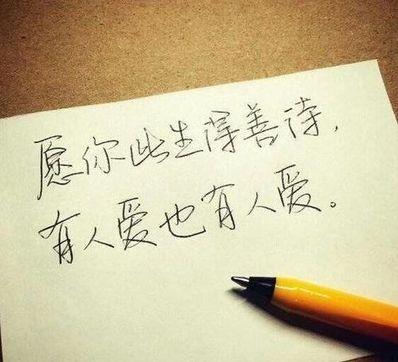 愿你此生得善待，
有人爱也有人爱。